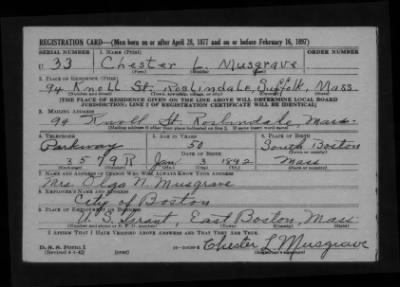 REGISTRATION CARD—(Men born on or after April 28, 1877 and on or before February 16, 1897)
SERIAL NUMBER 1. NAME (Print) ORDER NUMBER
U 33 Chester L. Musgrave
(First) (Middle) (Last)
2. PLACE OF RESIDENCE (Print)
94 Knoll St. Roslindale, Suffolk, Mass.
(Number and street) (Town, township, village, or city) (County) (State)
[THE PLACE OF RESIDENCE GIVEN ON THE LINE ABOVE WILL DETERMINE LOCAL BOARD
JURISDICTION; LINE 2 OF REGISTRATION CERTIFICATE WILL BE IDENTICAL]
3. MAILING ADDRESS
94 Knoll St Roslindale, Mass.
[Mailing address if other than place indicated on line 2. If same insert word same]
4. TELEPHONE 5. AGE IN YEARS 6. PLACE OF BIRTH
Parkway 50 South Boston
DATE OF BIRTH
3579R Jan 3 1892 Mass
7. NAME AND ADDRESS OF PERSON WHO WILL ALWAYS KNOW YOUR ADDRESS
Mrs. Olga N. Musgrave
8. EMPLOYER'S NAME AND ADDRESS
City of Boston
9. PLACE OF EMPLOYMENT OR BUSINESS
U. S. Grant, East Boston, Mass
I AFFIRM THAT I HAVE VERIFIED ABOVE ANSWERS AND THAT THEY ARE TRUE.
D. S. S. Form 1
(Revised 4-1-42) (over) Chester L Musgrave
(Registrant's signature)